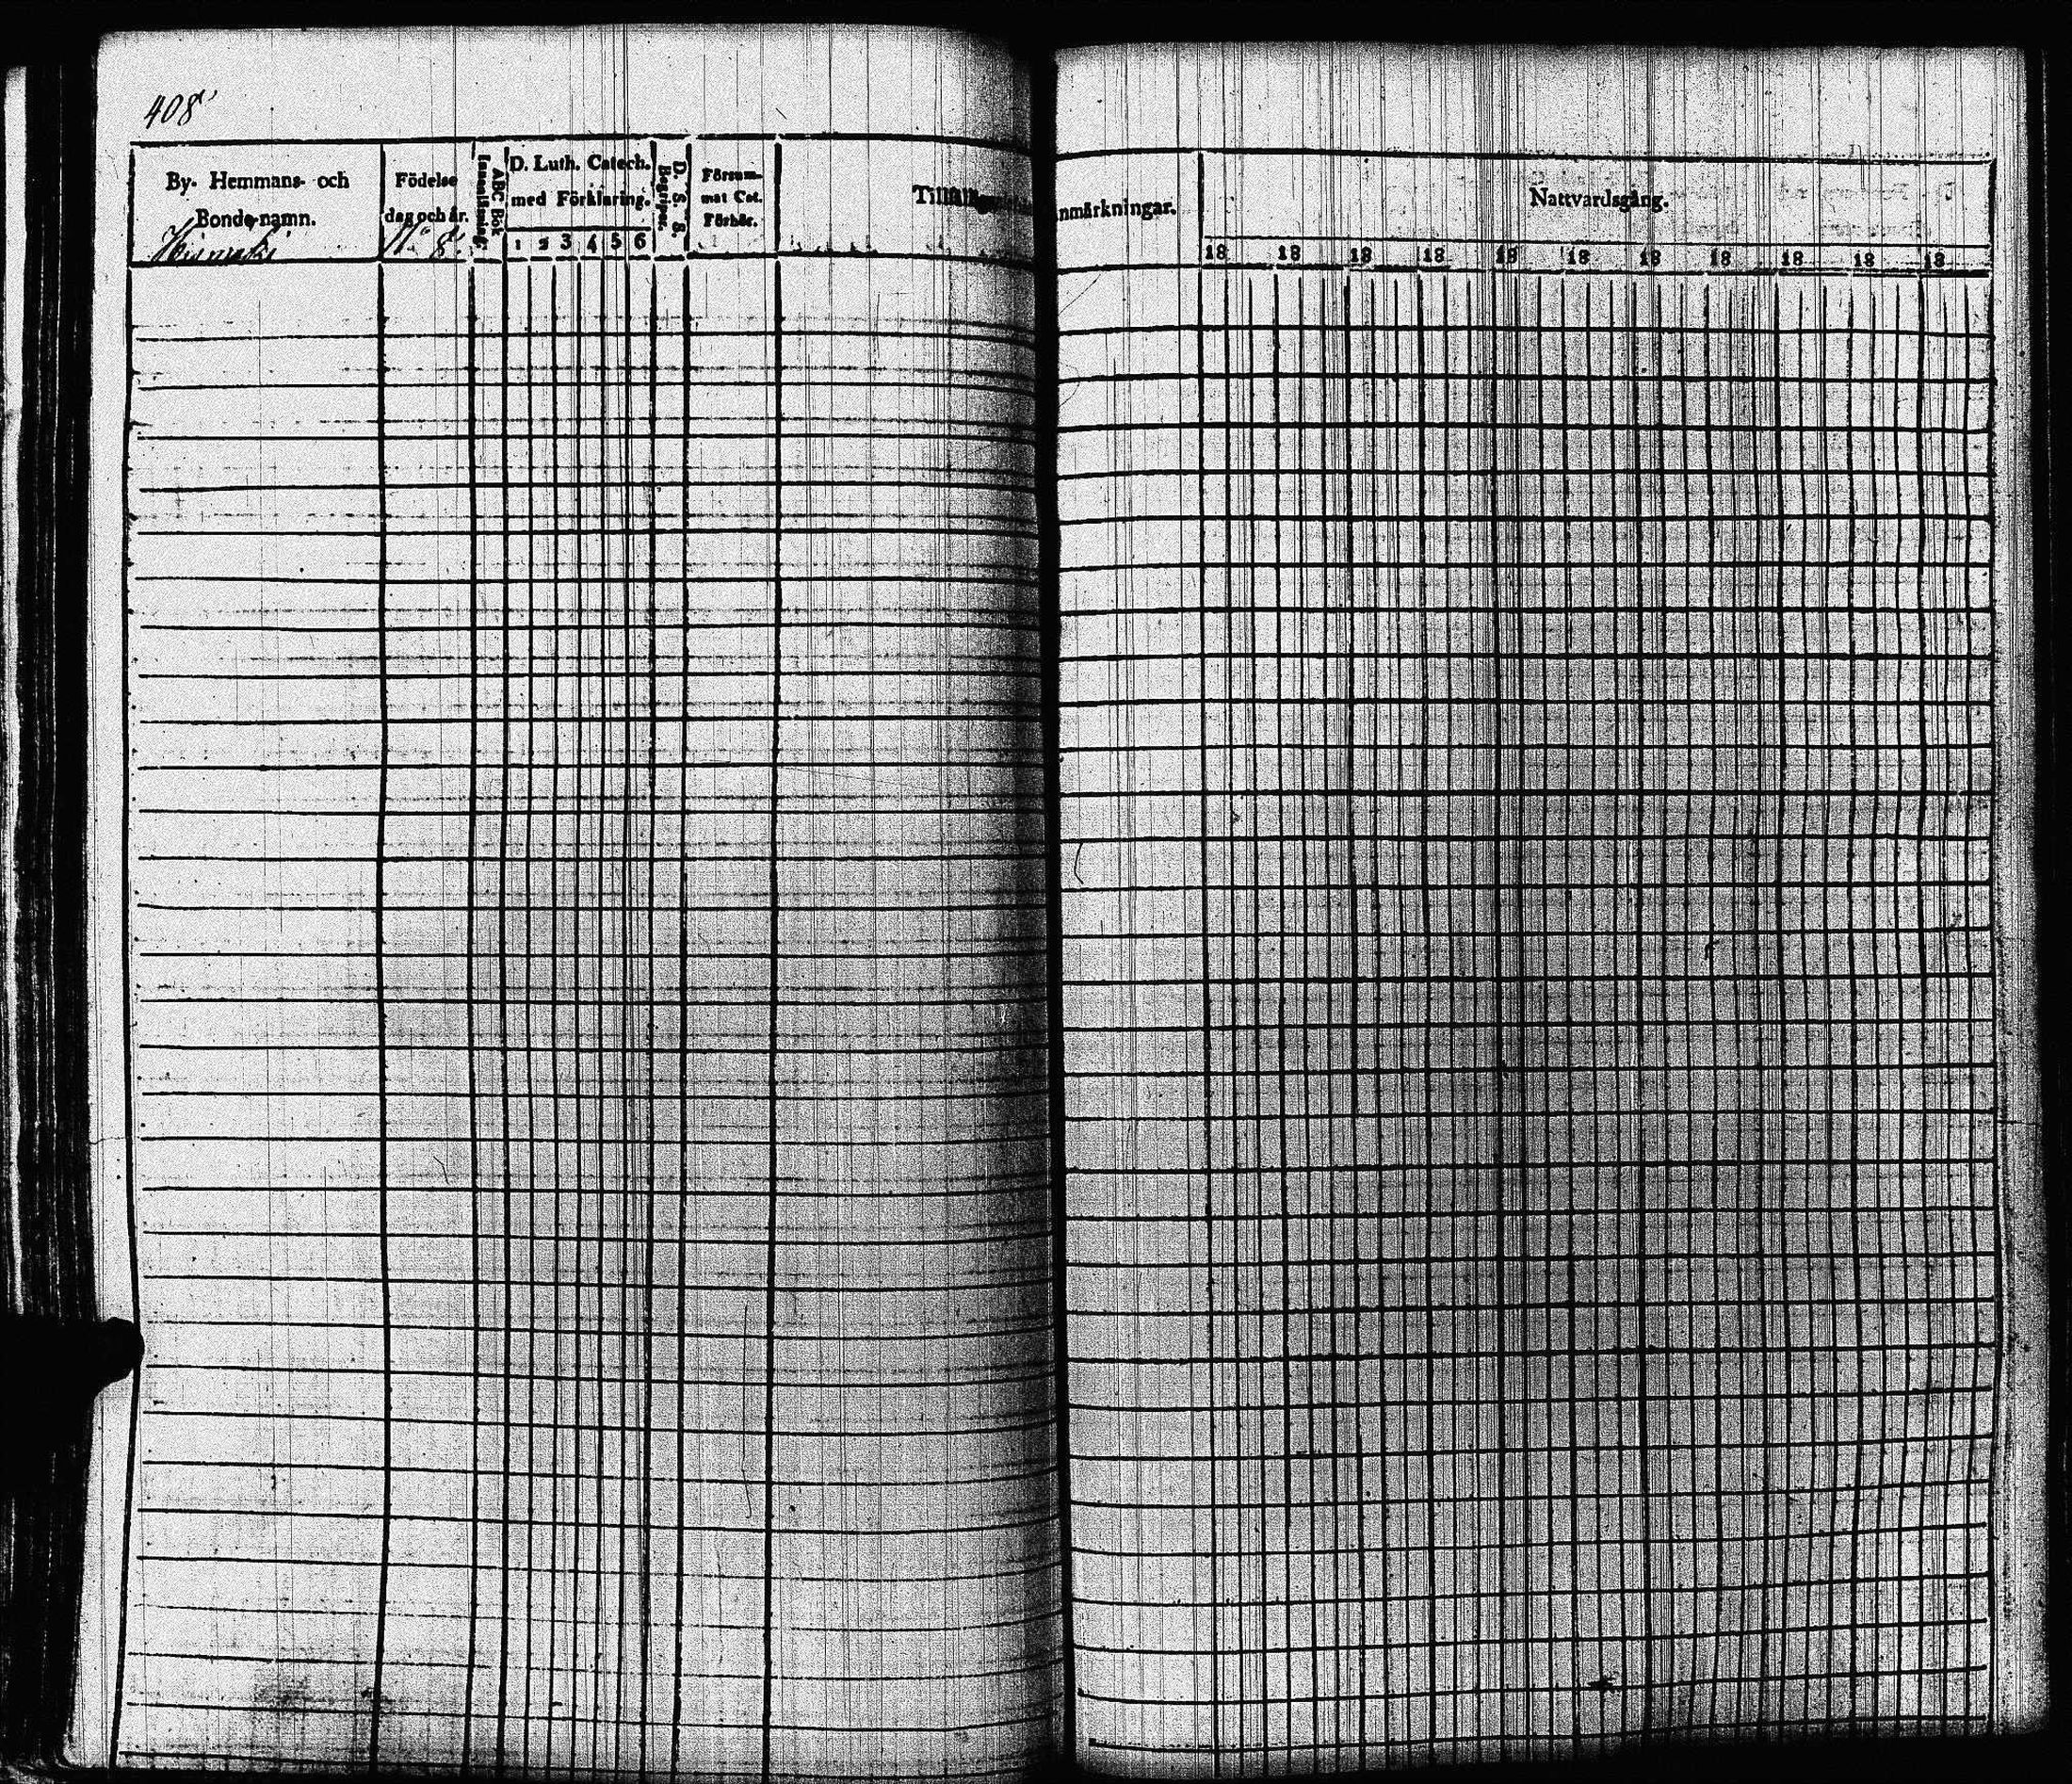 408
By- Hemmans- och
Bonde-namn.
Födelse
dag och år.
N:o 8.
ABC Bok
Innanläsning.
D. Luth. Catech.
med Förklaring.
1 2 3 4 5 6
D. S. B.
Begriper.
Försum-
mat Cat.
Förhör.
nmärkningar.
Nattvardsgång.
18 18 18 18 18 18 18 18 18 18 18